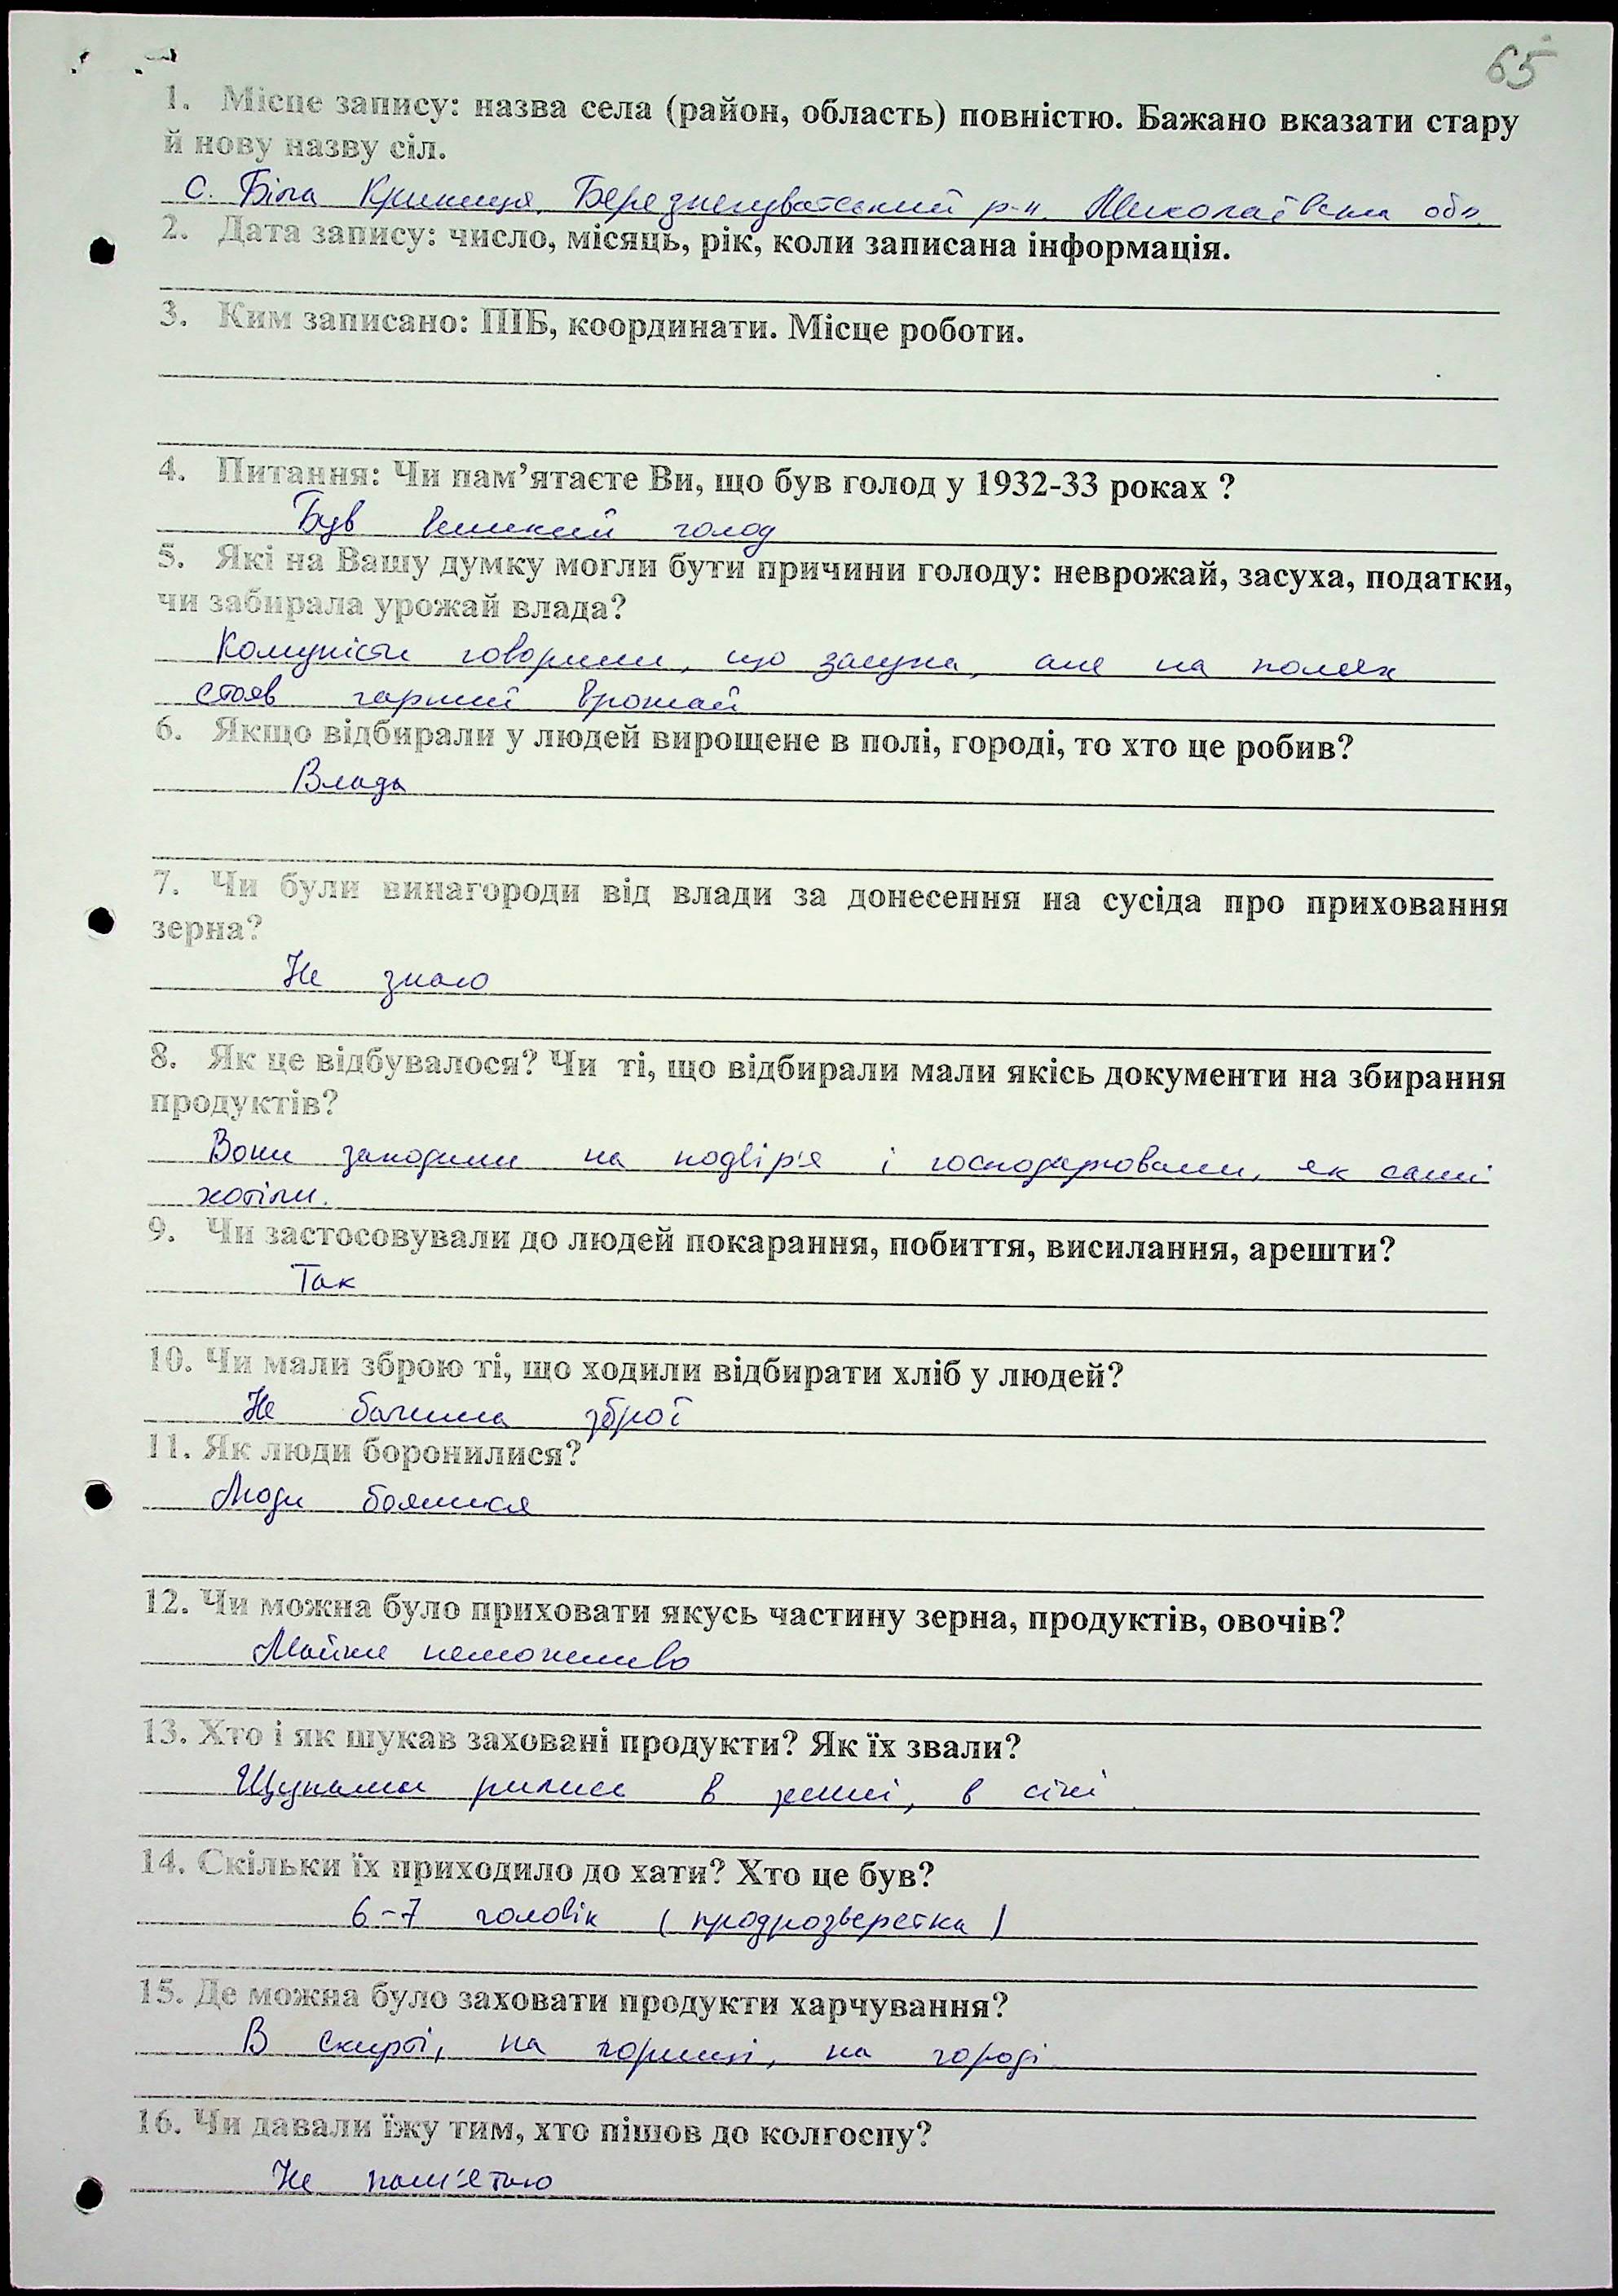 65
1. Місце запису: назва села (район, область) повністю. Бажано вказати стару
й нову назву сіл.
с. Біла Криниця, Березнегуватський р-н. Миколаївська обл.
2. Дата запису: число, місяць, рік, коли записана інформація.
3. Ким записано: ПІБ, координати. Місце роботи.
4. Питання: Чи пам’ятаєте Ви, що був голод у 1932-33 роках ?
Був великий голод
5. Які на Вашу думку могли бути причини голоду: неврожай, засуха, податки,
чи забирала урожай влада?
Комуністи говорили, що засуха, але на полях
стояв гарний врожай
6. Якщо відбирали у людей вирощене в полі, городі, то хто це робив?
Влада
7. Чи були винагороди від влади за донесення на сусіда про приховання
зерна?
Не знаю
8. Як це відбувалося? Чи ті, що відбирали мали якісь документи на збирання
продуктів?
Вони заходили на подвір'я і господарювали, як самі
хотіли.
9. Чи застосовували до людей покарання, побиття, висилання, арешти?
Так
10. Чи мали зброю ті, що ходили відбирати хліб у людей?
Не бачила зброї
11. Як люди боронилися?
Люди боялися
12. Чи можна було приховати якусь частину зерна, продуктів, овочів?
Майже неможливо
13. Хто і як шукав заховані продукти? Як їх звали?
Щупами рились в землі, в сіні
14. Скільки їх приходило до хати? Хто це був?
6-7 чоловік (продрозверстка)
15. Де можна було заховати продукти харчування?
В скирті, на горищі, на городі
16. Чи давали їжу тим, хто пішов до колгоспу?
Не пам'ятаю